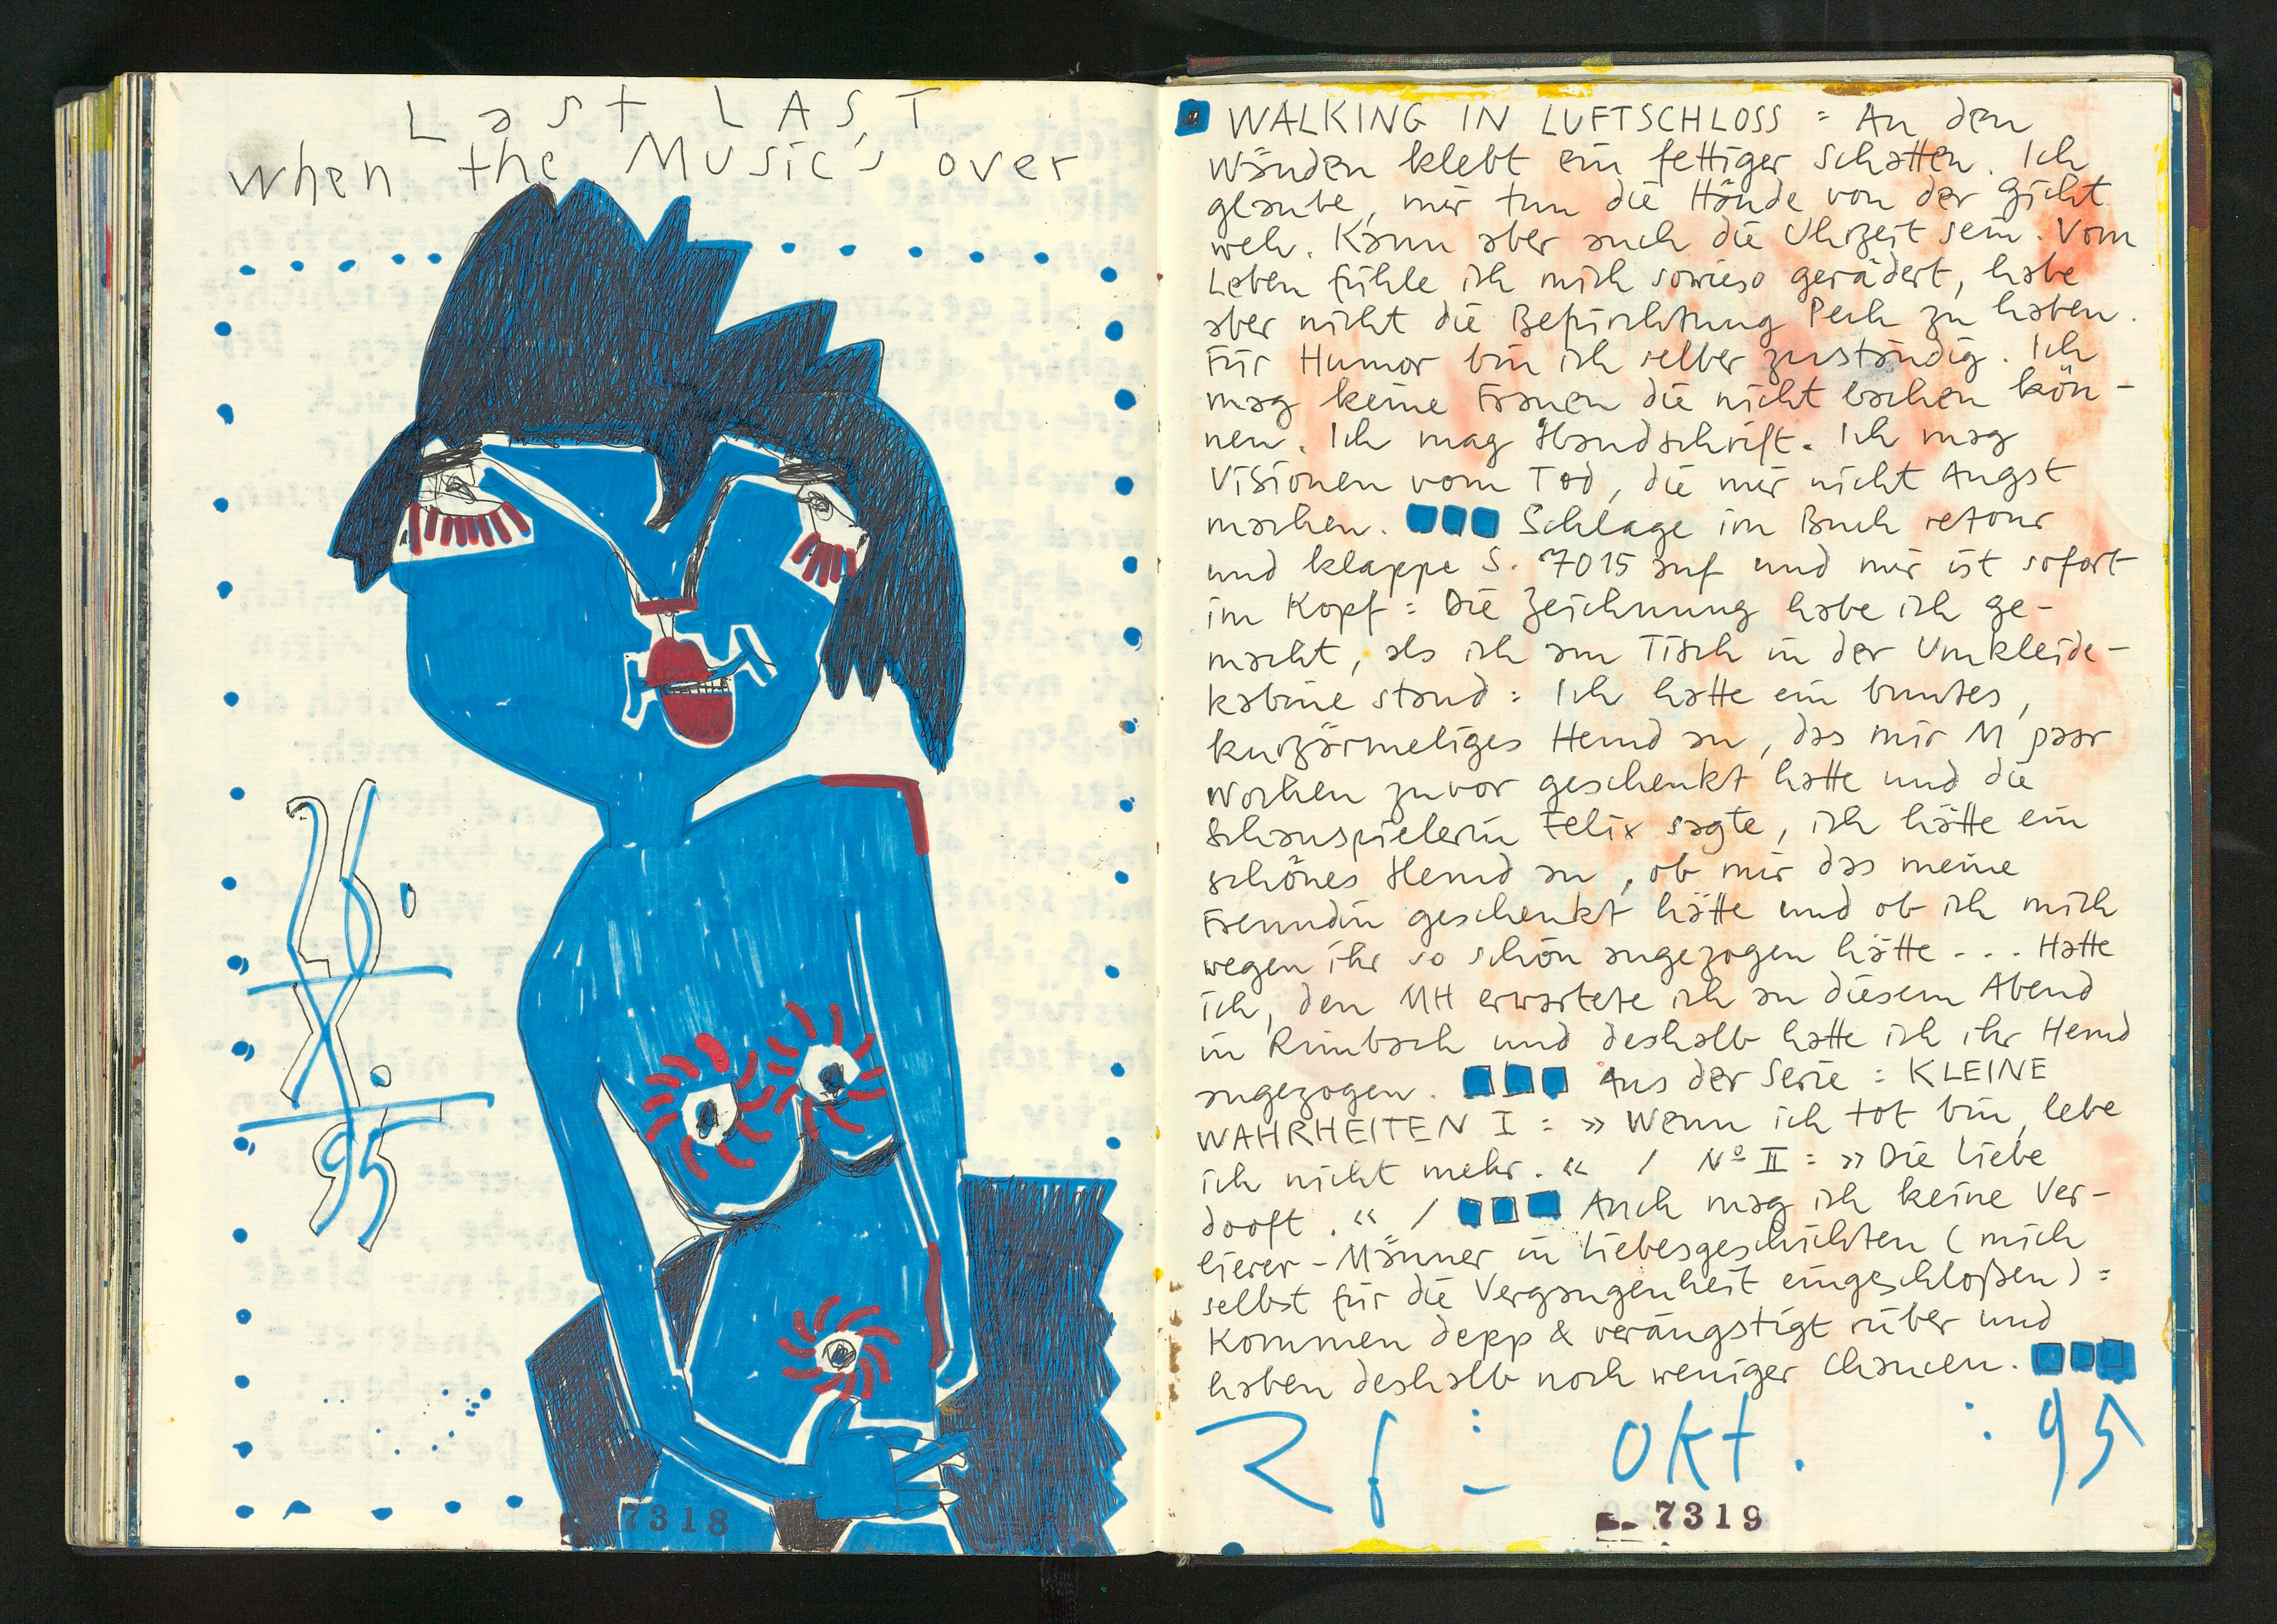 Last LAST
when the Music's over
26.
X.
95
7318
WALKING IN LUFTSCHLOSS = An den
Wänden klebt ein fettiger Schatten. Ich
glaube, mir tun die Hände von der Gicht
weh. Kann aber auch die Uhrzeit sein. Vom
Leben fühle ich mich sowieso gerädert, habe
aber nicht die Befürchtung Pech zu haben.
Für Humor bin ich selber zuständig. Ich
mag keine Frauen die nicht lachen kön-
nen. Ich mag Handschrift. Ich mag
Visionen vom Tod, die mir nicht Angst
machen. Schlage im Buch retour
und klappe S. 7015 auf und mir ist sofort
im Kopf: Die Zeichnung habe ich ge-
macht, als ich am Tisch in der Umkleide-
kabine stand: Ich hatte ein buntes,
kurzärmeliges Hemd an, das mir M paar
Wochen zuvor geschenkt hatte und die
Schauspielerin Felix sagte, ich hätte ein
schönes Hemd an, ob mir das meine
Freundin geschenkt hätte und ob ich mich
wegen ihr so schön angezogen hätte... Hatte
ich, den MH erwartete ich an diesem Abend
in Rimbach und deshalb hatte ich ihr Hemd
angezogen. Aus der Serie: KLEINE
WAHRHEITEN I: »Wenn ich tot bin, lebe
ich nicht mehr.« / Nº II: »Die Liebe
dooft.« / Auch mag ich keine Ver-
lierer-Männer in Liebesgeschichten (mich
selbst für die Vergangenheit eingeschloßen):
Kommen depp & verängstigt rüber und
haben deshalb noch weniger Chancen.
26 : Okt. : 95
7319